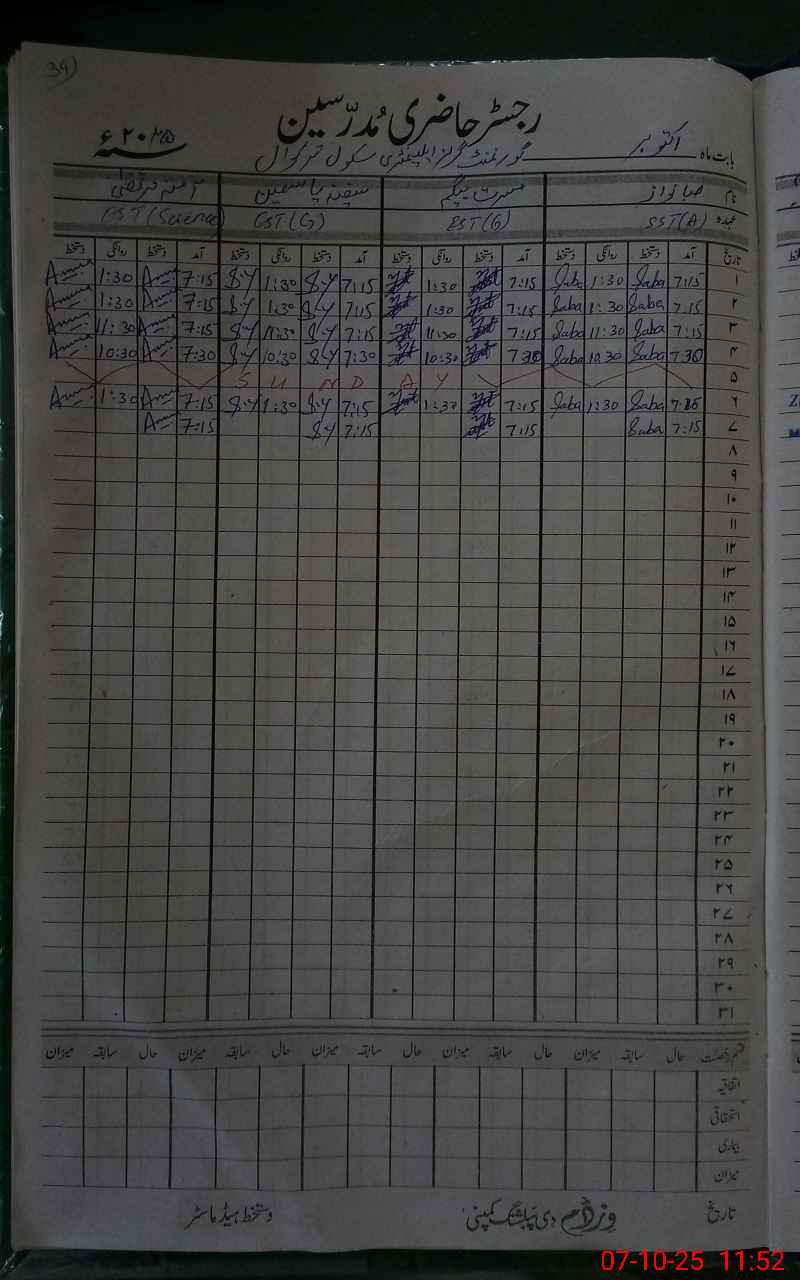 39)
رجسٹر حاضری مُدرّسین
بابت ماہ اکتوبر گورنمنٹ گرلز ایلیمنٹری سکول ۲۰۲۵ء
نام صبا نواز مسرت بیگم سفینہ یاسمین آمنہ مرتضیٰ
عہدہ SST(A) EST(G) GST(G) EST(Science)
تاریخ آمد دستخط روانگی دستخط آمد دستخط روانگی دستخط آمد دستخط روانگی دستخط آمد دستخط روانگی دستخط
۱ 7:15 Saba 1:30 Saba 7:15 1:30 7:15 SY 1:30 SY 7:15 1:30
۲ 7:15 Saba 1:30 Saba 7:15 1:30 7:15 SY 1:30 SY 7:15 1:30
۳ 7:15 Saba 11:30 Saba 7:15 11:30 7:15 SY 11:30 SY 7:15 11:30
۴ 7:30 Saba 10:30 Saba 7:30 10:30 7:30 SY 10:30 SY 7:30 10:30
۵ SUNDAY
۶ 7:15 Saba 1:30 Saba 7:15 1:30 7:15 SY 1:30 SY 7:15 1:30
۷ 7:15 Saba 7:15 7:15 SY 7:15
۸
۹
۱۰
۱۱
۱۲
۱۳
۱۴
۱۵
۱۶
۱۷
۱۸
۱۹
۲۰
۲۱
۲۲
۲۳
۲۴
۲۵
۲۶
۲۷
۲۸
۲۹
۳۰
۳۱
قسم رخصت حال سابقہ میزان حال سابقہ میزان حال سابقہ میزان حال سابقہ میزان
اتفاقیہ
استحقاقی
بیماری
میزان
تاریخ وزڈم دی پبلشنگ کمپنی دستخط ہیڈ ماسٹر
07-10-25 11:52